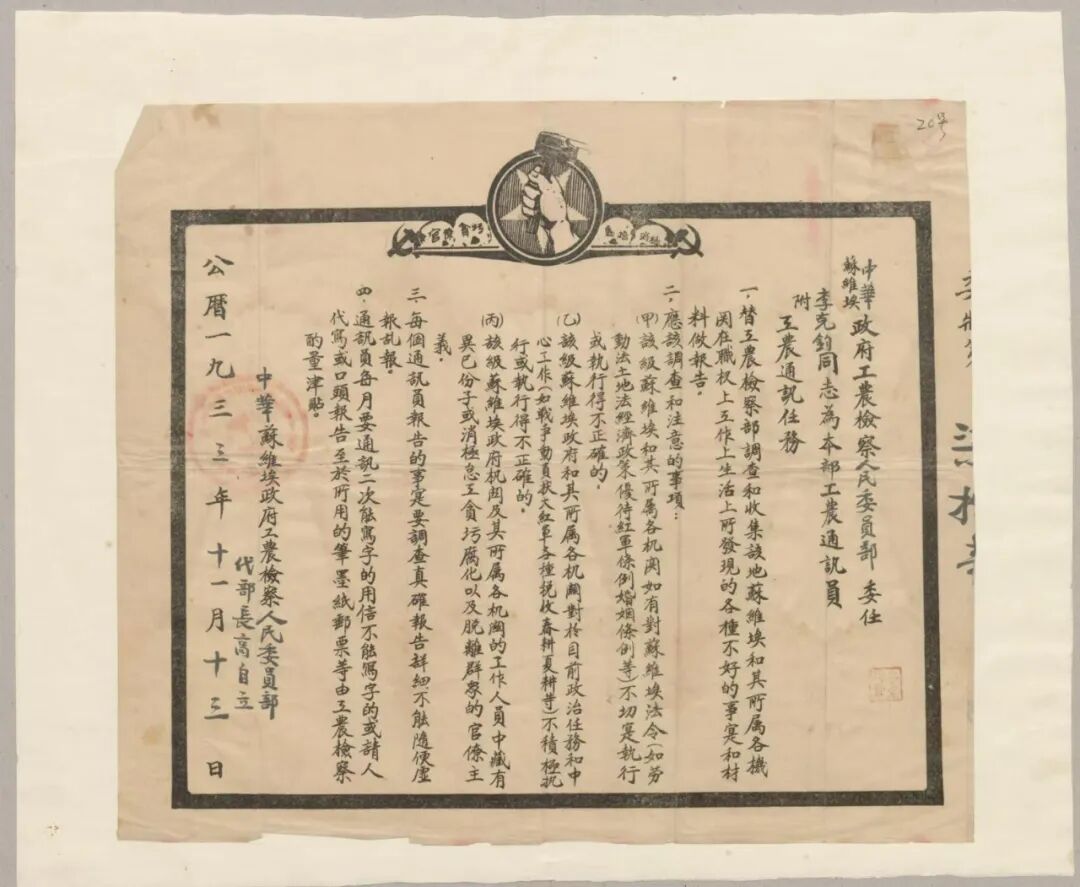 20号
中華
蘇維埃
政府工農檢察人民委員部 委任
李克鈞同志為本部工農通訊員
附
工農通訊任務
一，替工農檢察部調查和收集該地蘇維埃和其所屬各機
関在職权上工作上生活上所發現的各種不好的事寔和材
料做報告。
二，應該調查和注意的事項：
(甲)該級蘇維埃和其所属各机関如有對蘇維埃法令(如劳
動法土地法經濟政策優待紅軍條例婚姻條例等)不切寔执行
或执行得不正確的。
(乙)該級蘇維埃政府和其所属各机関對於目前政治任務和中
心工作(如战爭動員扩大紅軍各種税收春耕夏耕等)不積極执
行或执行得不正確的。
(丙)該級蘇維埃政府机関及其所属各机関的工作人員中藏有
異已份子或消極怠工貪污腐化以及脱離群衆的官僚主
義。
三，每個通訊員報告的事寔要調查真確報告詳細不能隨便虛
報乱報。
四，通訊員每月要通訊二次能寫字的用信不能寫字的或請人
代寫或口頭報告至於所用的筆墨紙郵票等由工農檢察
酌量津貼。
中華蘇維埃政府工農檢察人民委員部
代部長高自立
公曆一九三三年十一月十三日